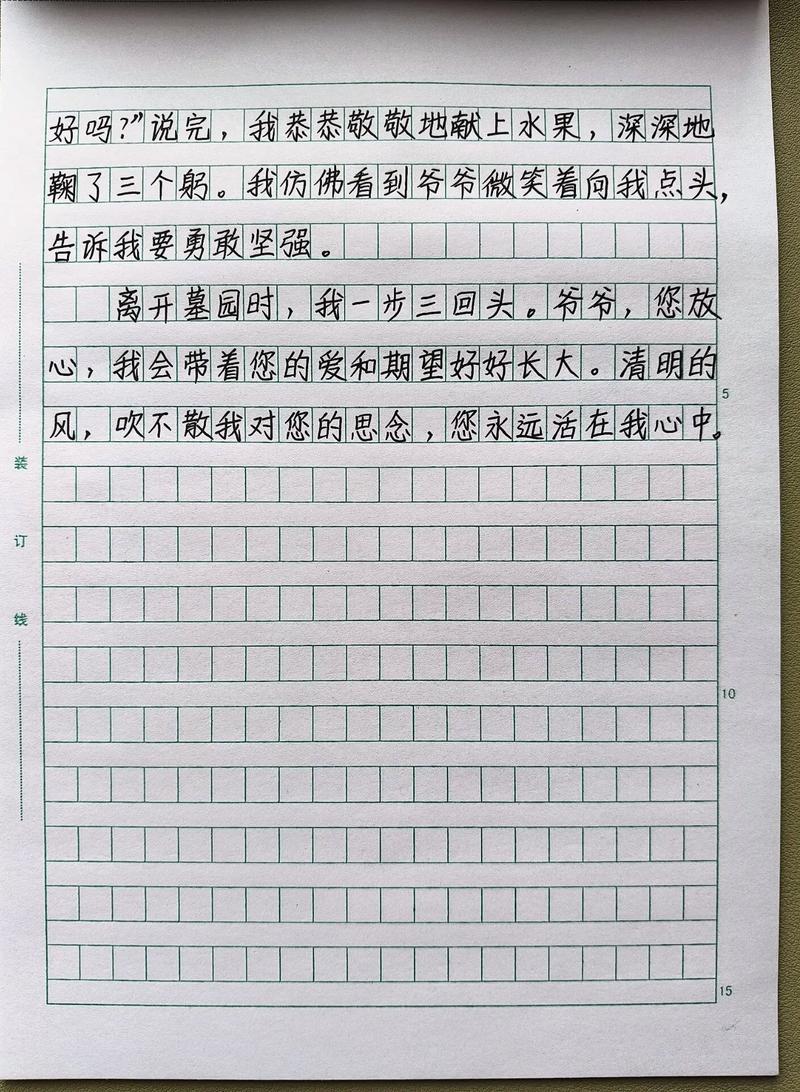 好吗?”说完，我恭恭敬敬地献上水果，深深地
鞠了三个躬。我仿佛看到爷爷微笑着向我点头，
告诉我要勇敢坚强。
离开墓园时，我一步三回头。爷爷，您放
心，我会带着您的爱和期望好好长大。清明的
5
风，吹不散我对您的思念，您永远活在我心中。
装
订
线
10
15